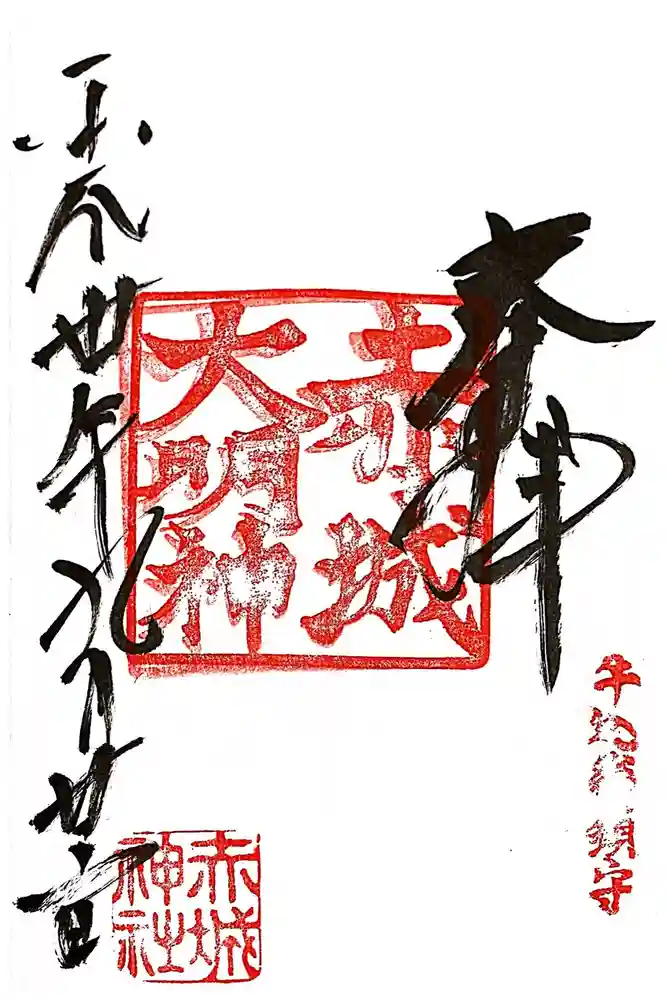 奉拝
牛込総鎮守
赤城
大明神
平成丗年九月廿二日
赤城
神社